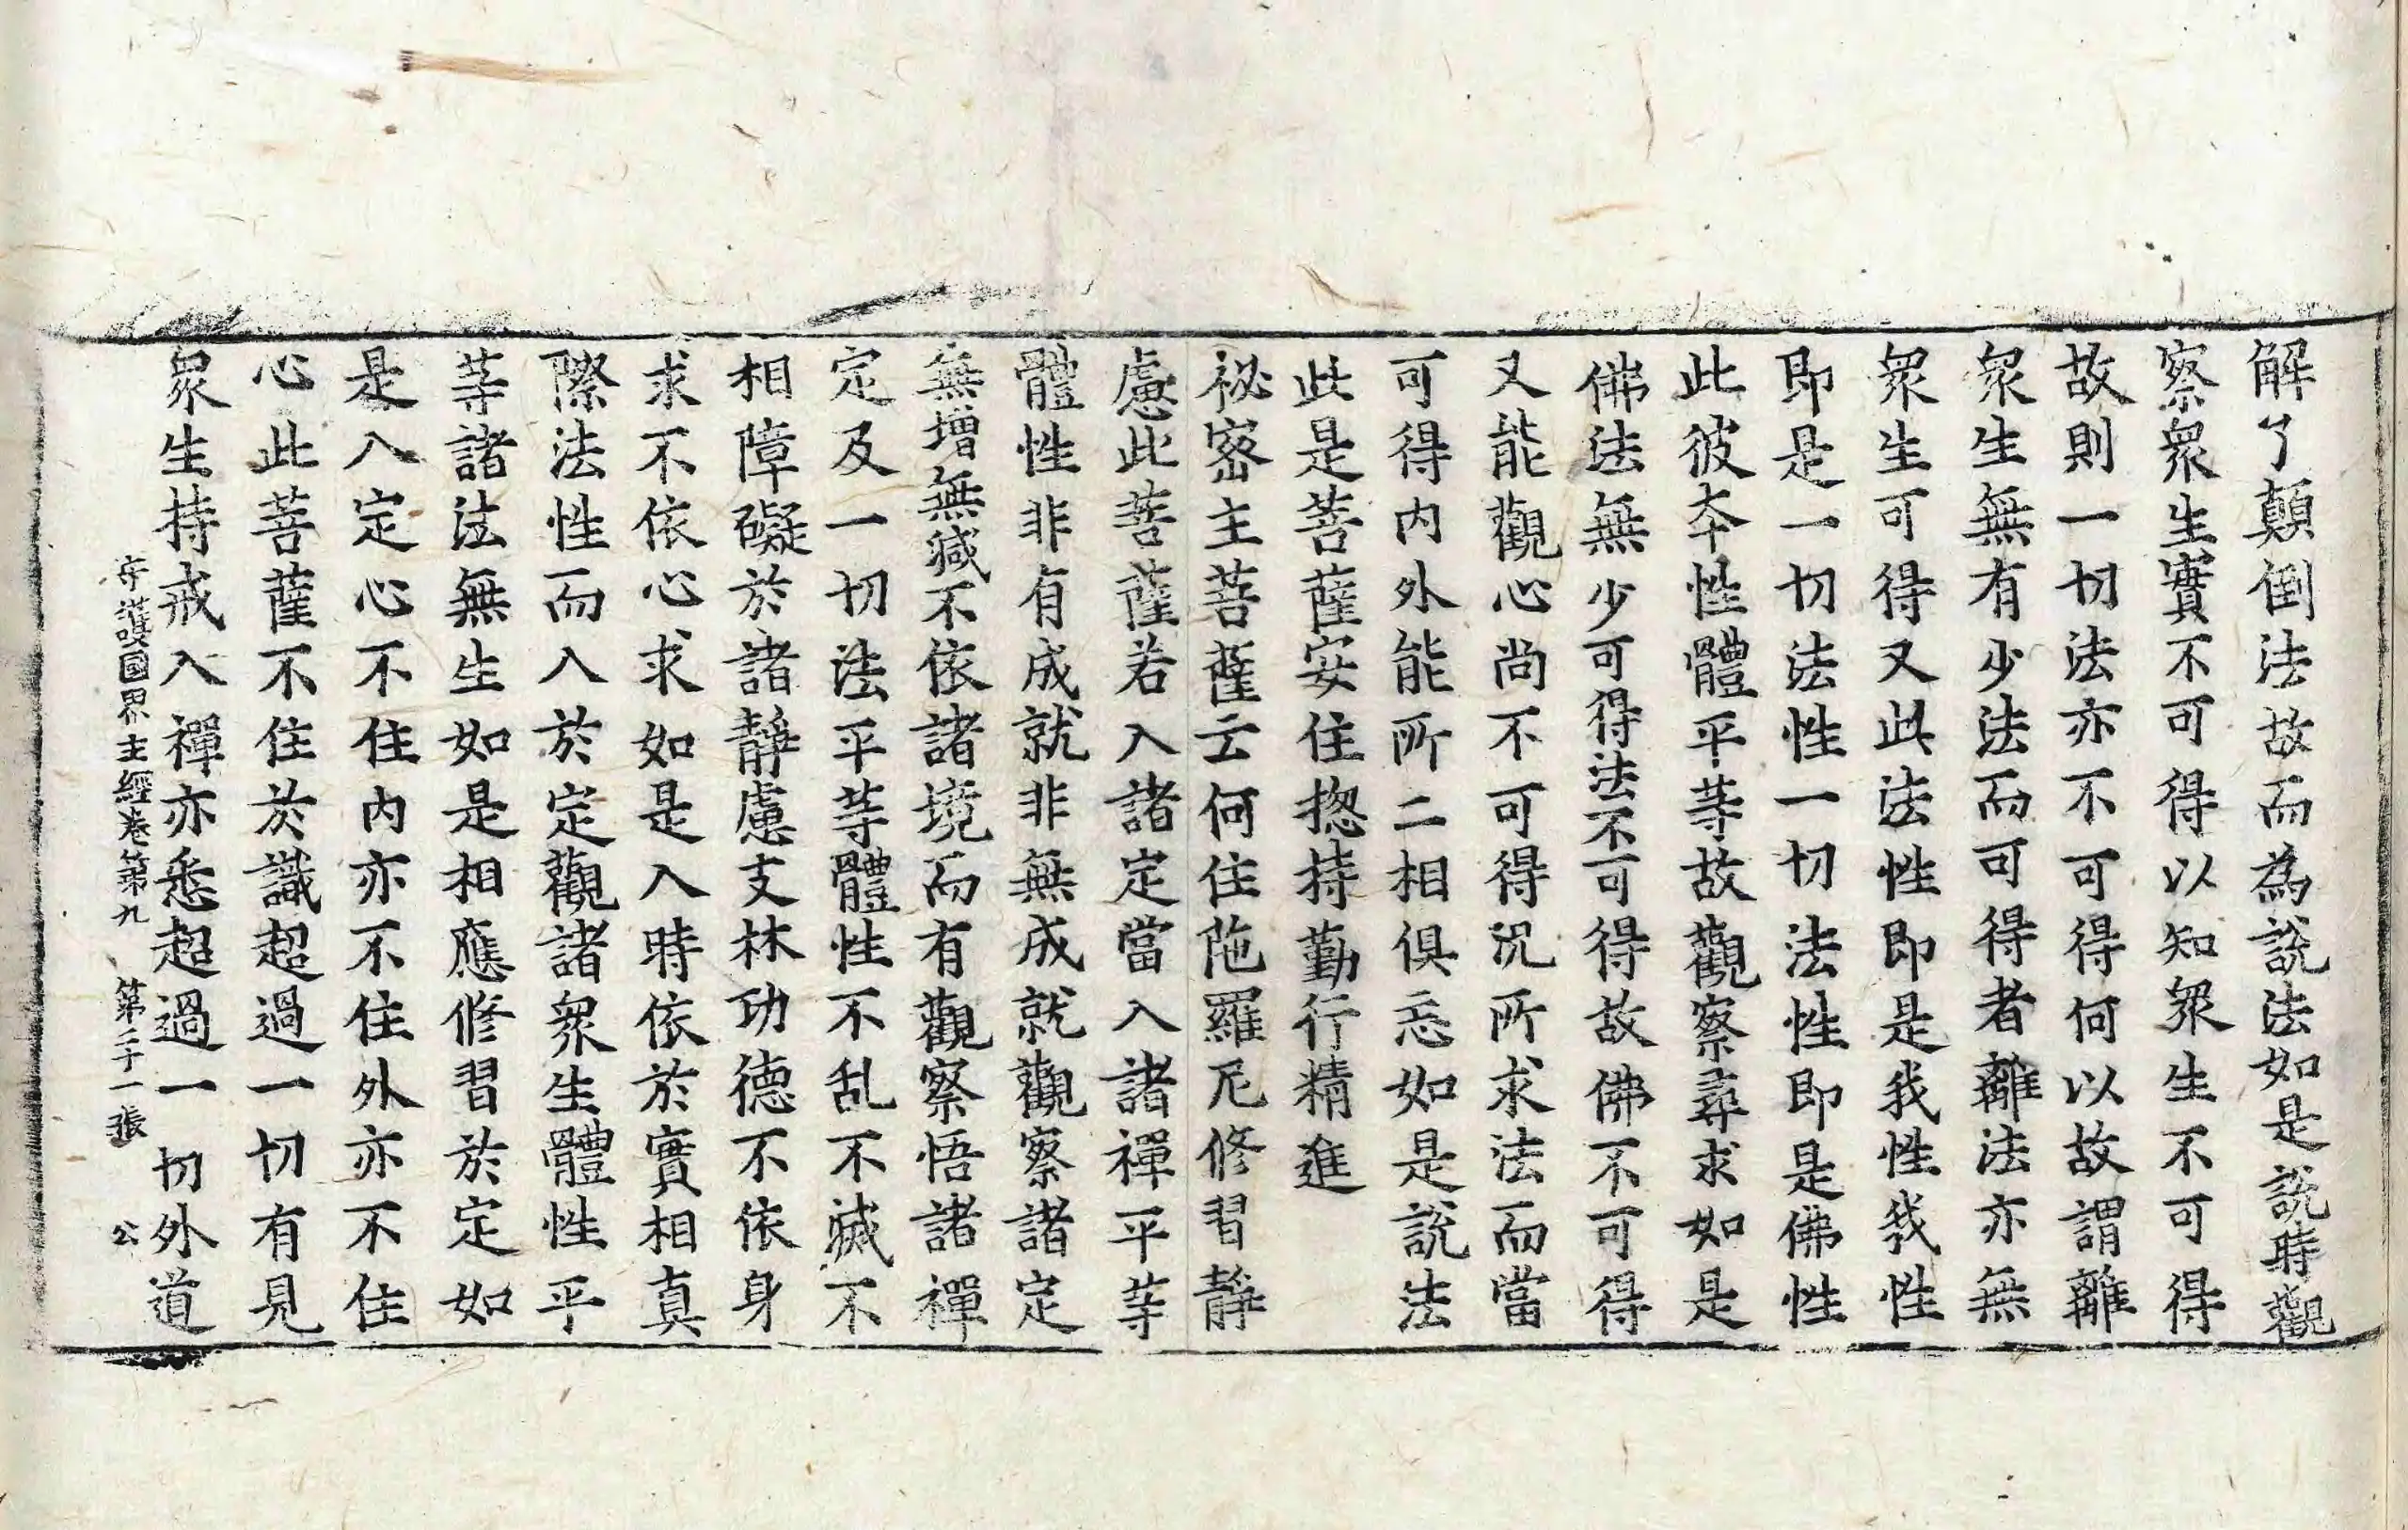 解了顛倒法故而為說法如是說時觀
察衆生實不可得以知衆生不可得
故則一切法亦不可得何以故謂離
衆生無有少法而可得者離法亦無
衆生可得又此法性即是我性我性
即是一切法性一切法性即是佛性
此彼本性體平等故觀察尋求如是
佛法無少可得法不可得故佛不可得
又能觀心尚不可得況所求法而當
可得内外能所二相俱忘如是說法
此是菩薩安住揔持勤行精進
祕密主菩薩云何住陁羅尼修習靜
慮此菩薩若入諸定當入諸禪平等
體性非有成就非無成就觀察諸定
無增無減不依諸境而有觀察悟諸禪
定及一切法平等體性不乱不滅不
相障礙於諸靜慮支林功德不依身
求不依心求如是入時依於實相真
際法性而入於定觀諸衆生體性平
等諸法無生如是相應修習於定如
是入定心不住内亦不住外亦不住
心此菩薩不住於識超過一切有見
衆生持戒入禪亦悉超過一切外道
守護國界主經卷第九 第二十一張 公